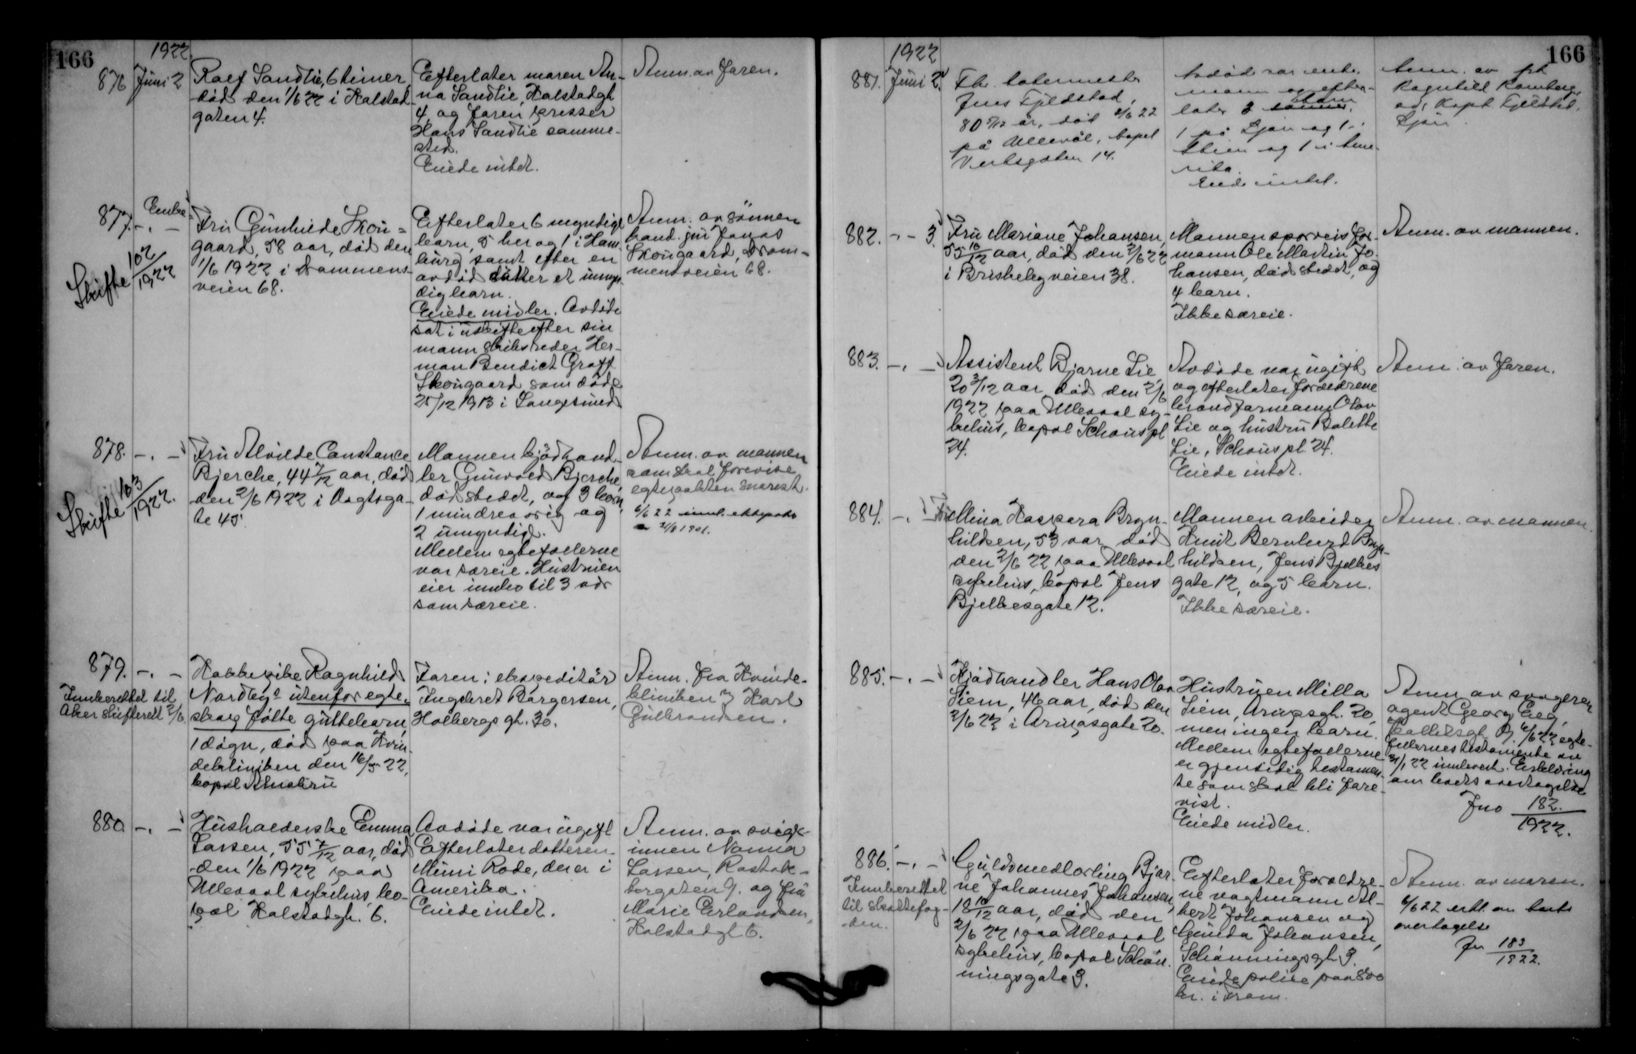 166
1922
876 Juni 2
Rolf Sandlie, 6 timer,
død den 1/6 22 i Halstad-
gaten 4.
Efterlater moren An-
na Sandlie, Halstadgt
4, og faren presser
Hans Sandlie samme-
sted.
Eiede intet.
Anm. av faren.
877. - . -
Enke
Skifte 102/1922
Fru Gunhilde Skou-
gaard, 58 aar, død den
1/6 1922 i Drammens-
veien 68.
Efterlater 6 myndige
barn, 5 her og 1 i Ham-
burg samt efter en
avdød datter et umyn-
dig barn.
Eiede midler. Avdøde
sat i uskifte efter sin
mann skibsreder Her-
man Bendict Graff
Skougaard som døde
25/12 1913 i Langesund
Anm. av sønnen
kand. jur Jonas
Skougaard, Dram-
mensveien 68.
878. - . -
Skifte 103/1922.
Fru Alvilde Constance
Bjerche, 44 7/12 aar, død
den 2/6 1922 i Vogtsga-
te 45.
Mannen kjødhand-
ler Gunvald Bjerche,
død stedet, og 3 barn,
1 mindreaarig og
2 umyndige.
Mellem egtefællerne
var særeie. Hustruen
eier indbo til 3 vær
som særeie.
Anm. av mannen
som skal forevise
egtepakten snarest.
6/6 22
879. - . -
Innberettet til
Aker skifterett 2/6
Hobbypike Ragnhild
Nordbys utenfor egte-
skap fødte guttebarn,
1 døgn, død paa Kvin-
deklinikken den 16/5 22,
bopæl
Faren: ekspeditør
Ingebret Børgersen,
Holbergs gt. 30.
Anm. fra Kvinde-
klinikken v Karl
Gulbransen.
880. - . -
Husholderske Emma
Larsen, 55 7/12 aar, død
den 1/6 1922 paa
Ullevaal sykehus, bo-
pæl Halstadgt. 6.
Avdøde var ugift
Efterlater datteren
Mimi Rode, den er i
Amerika.
Eiede intet.
Anm. av svige-
innen Nanna
Larsen, Rostok-
borgaten 9. og fru
Marie Erlandsen,
Halstadgt 6.
166
1922
881. Juni 2.
Fhv.
Jens Fjeldstad,
80 år, død 2/6 22
på Ullevål, bopel
gaten 14.
Avdød var enke-
mann og efter-
later 3 barn
1 på Ljan og 1
og 1 i Ame-
rika.
Eiede intet.
Anm. av frk
Ragnhild Romberg,
og Kapt Fjeldstad,
Ljan.
882. - - 3.
Fru Mariane Johansen,
55 10/12 aar, død den 2/6 22
i Briskebyveien 38.
Mannen sporveisfor-
mann Ole Martin Jo-
hansen, død stedet, og
4 barn.
Ikke særeie.
Anm. av mannen.
883. - . -
Assistent Bjarne Lie
20 3/12 aar, død den 2/6
1922 paa Ullevaal sy-
kehus, bopæl Schous pl
24.
Avdøde var ugift
og efterlater forældrene
brandformann Olav
Lie og hustru Bolette
Lie, Schous pl 24.
Eiede intet.
Anm. av faren.
884. - . -
Fru Mina Kaspara Bryn-
hildsen, 53 aar, død
den 2/6 22 paa Ullevaal
sykehus, bopæl Jens
Bjelkesgate 12.
Mannen arbeider
Knut Bernhard Bryn-
hildsen, Jens Bjelkes
gate 12, og 5 barn.
Ikke særeie.
Anm. av mannen.
885. - . -
Kjødhandler Hans Olav
Siem, 46 aar, død den
2/6 22 i Arupsgate 20.
Hustruen Milla
Siem, Arupsgt. 20,
men ingen barn.
Mellem egtefællerne
er gjensidig testamen-
te som skal bli fore-
vist.
Eiede midler.
Anm. av svogeren
agent Georg Eeg,
6/6 22 egte-
fellernes testamente av
22 innlevert. Erklæring
om boets overtagelse
Jno 182/1922.
886. - . -
Innberettet
til skattefog-
den.
Guldsmedlærling Bjar-
ne Johannes Johansen,
18 10/12 aar, død den
2/6 22 paa Ullevaal
sykehus, bopæl Schøn-
ningsgate 3.
Efterlater forældre-
ne vognmann Al-
bert Johansen og
Gunda Johansen,
Schønningsgt 3.
Eiede polise paa 800
kr. i Dram.
Anm. av moren.
6/6 22 erkl om boets
overtagelse
Jno 183/1922.